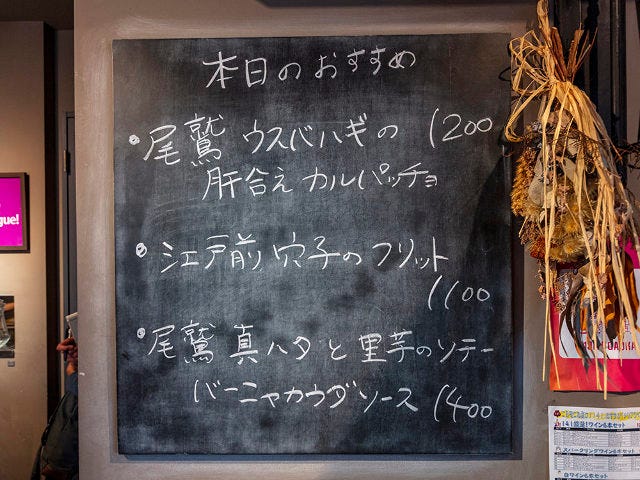 本日のおすすめ
・尾鷲 ウスバハギの 1200
肝合え カルパッチョ
・江戸前 穴子のフリット
1100
・尾鷲 真ハタと里芋のソテー
バーニャカウダソース 1400
gue!